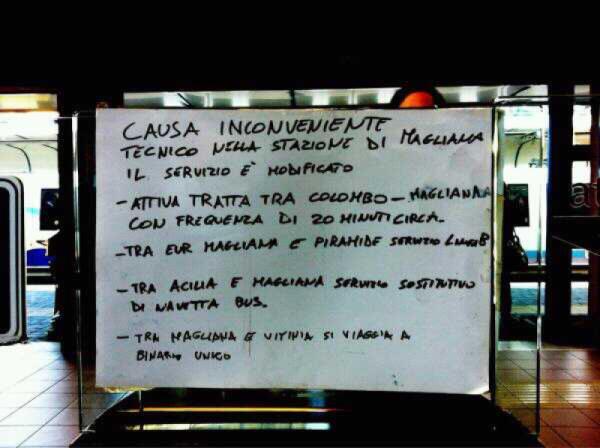 CAUSA INCONVENIENTE
TECNICO NELLA STAZIONE DI MAGLIANA
IL SERVIZIO E' MODIFICATO
- ATTIVA TRATTA TRA COLOMBO - MAGLIANA
CON FREQUENZA DI 20 MINUTI CIRCA.
- TRA EUR MAGLIANA E PIRAMIDE SERVIZIO LINEA B
- TRA ACILIA E MAGLIANA SERVIZIO SOSTITUTIVO
DI NAVETTA BUS.
- TRA MAGLIANA E VITINIA SI VIAGGIA A
BINARIO UNICO